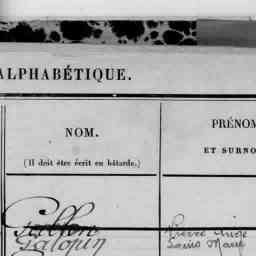 ALPHABÉTIQUE.
NOM.
(Il doit être écrit en bâtarde.)
PRÉNOM
ET SURNO
Galopin
Pierre
Louis Marie